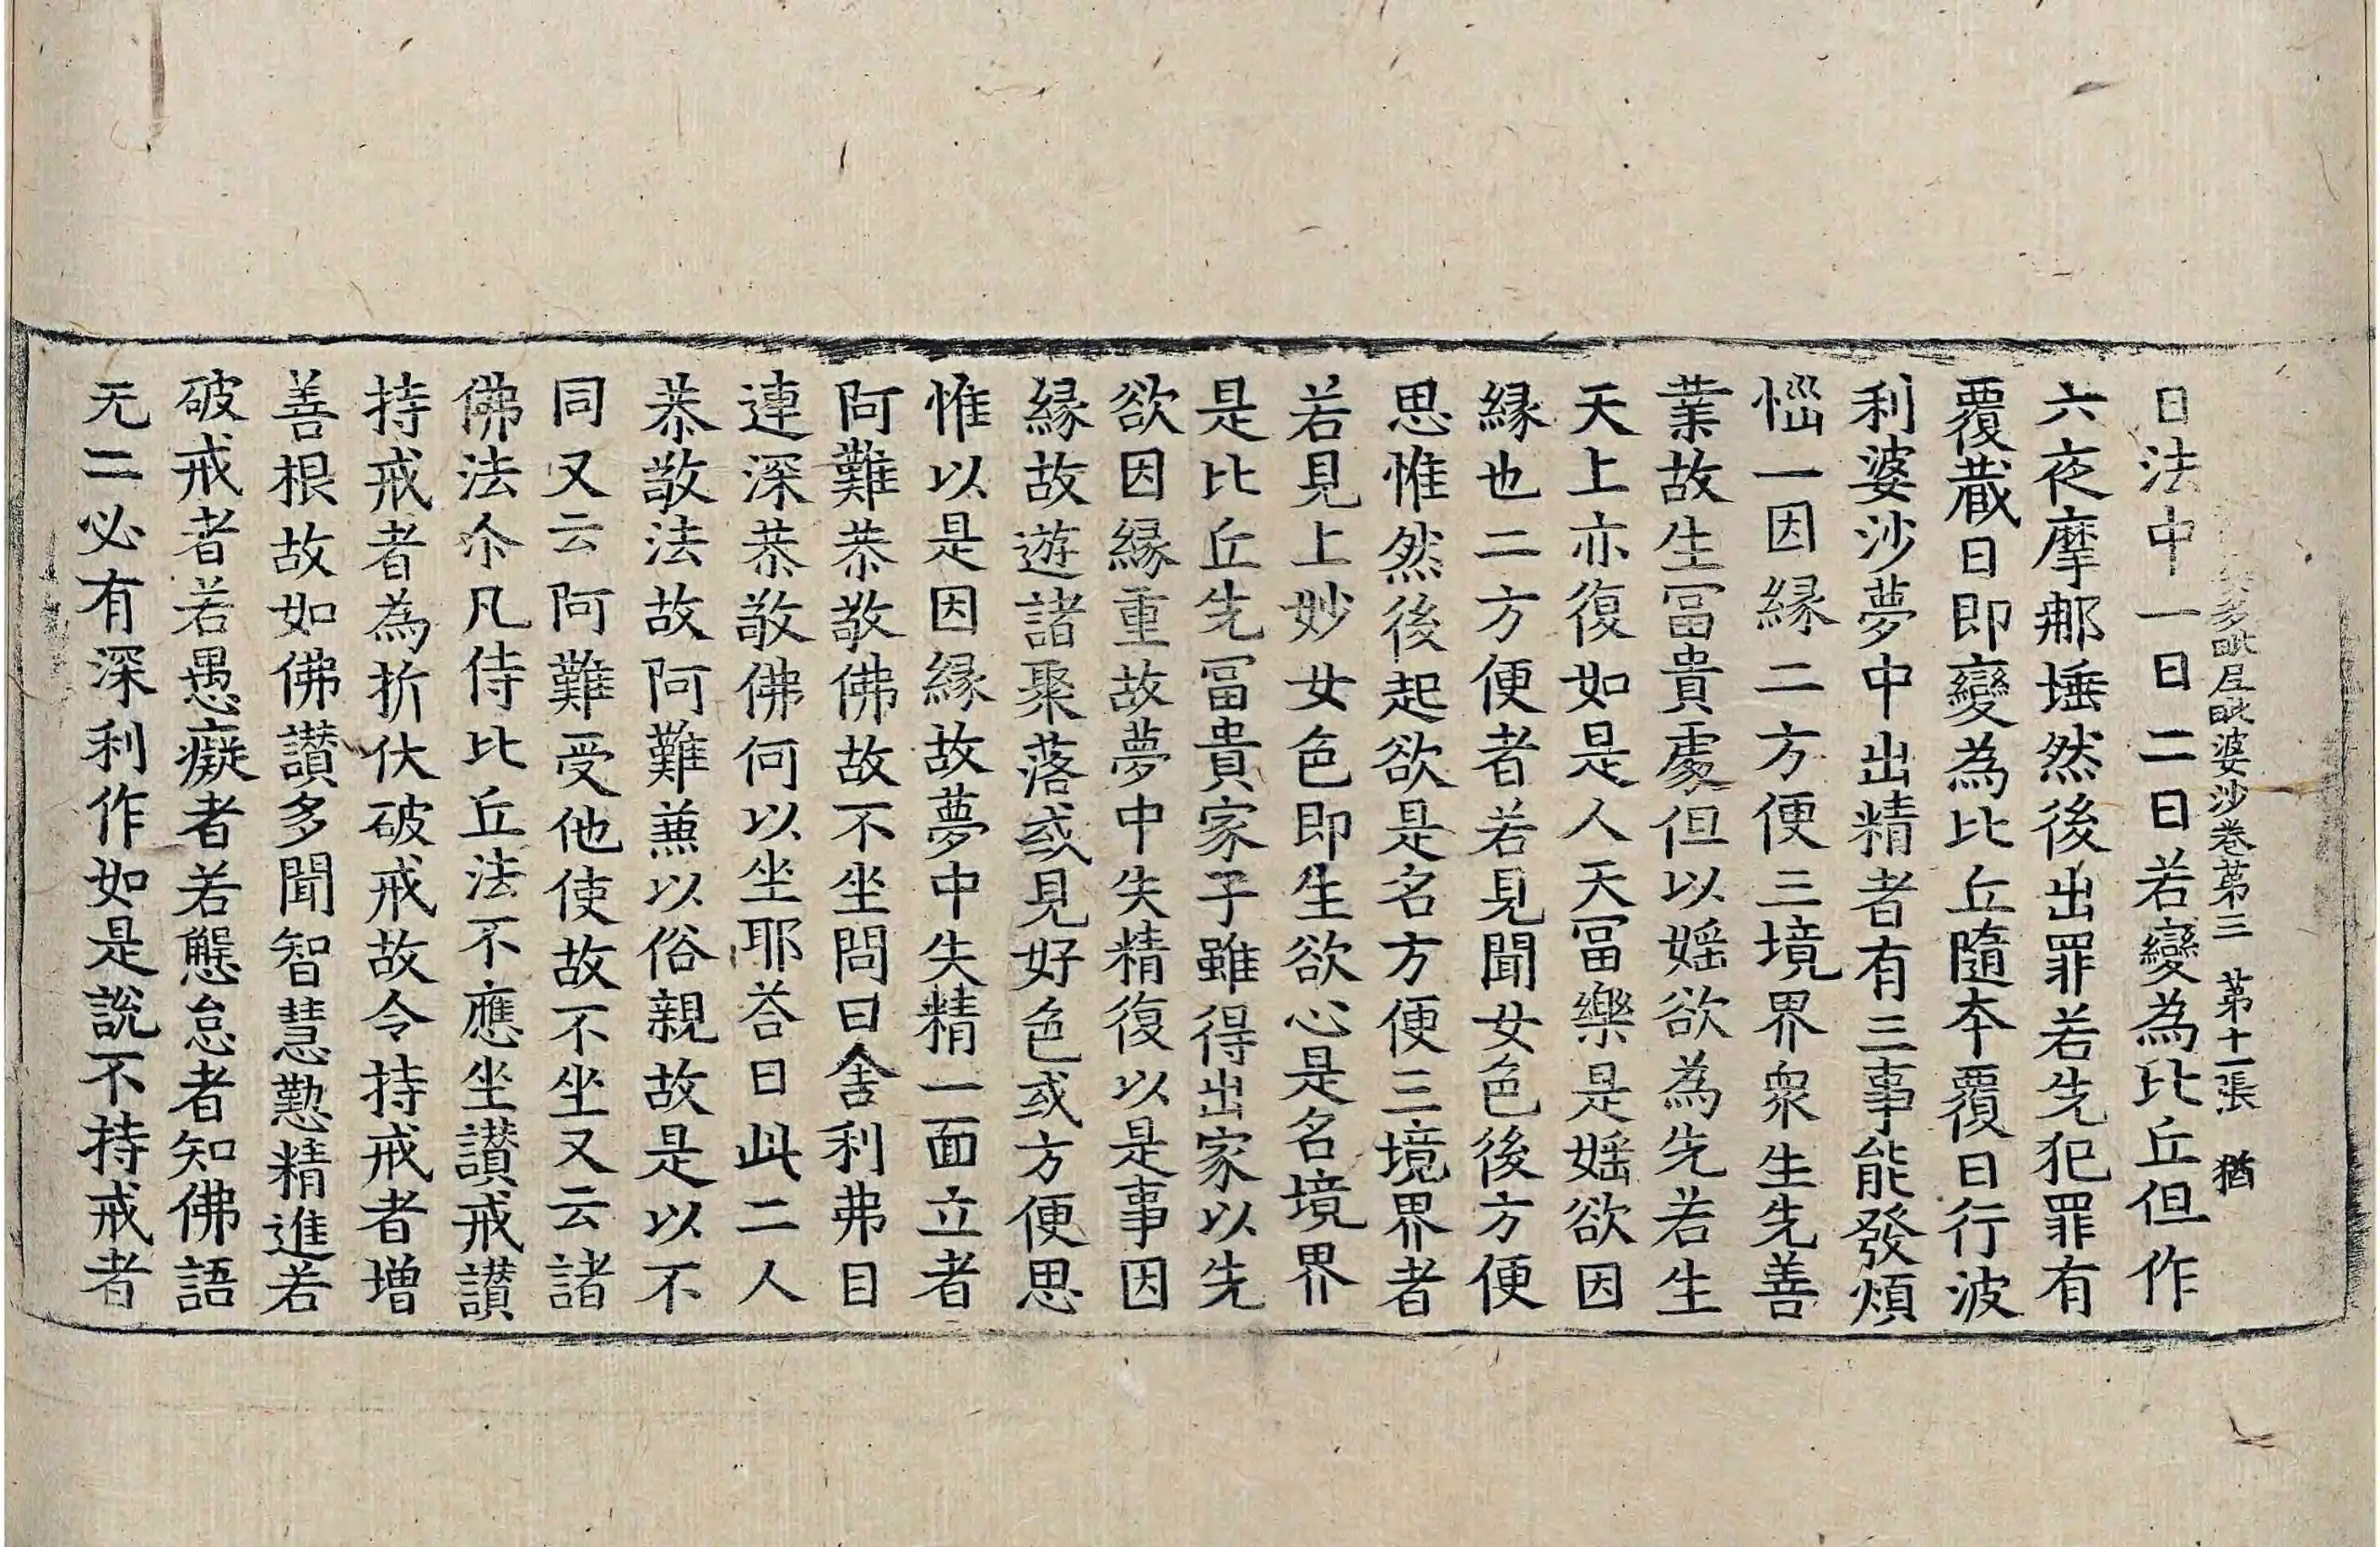 婆多毗尼毗婆沙卷苐三 苐十一張 猶
日法中一日二日若變為比丘但作
六夜摩那埵然後出罪若先犯罪有
覆蔵日即變為比丘隨本覆日行波
利婆沙夢中出精者有三事能發煩
惱一因縁二方便三境界衆生先善
業故生冨貴處但以婬欲為先若生
天上亦復如是人天冨樂是婬欲因
縁也二方便者若見聞女色後方便
思惟然後起欲是名方便三境界者
若見上妙女色即生欲心是名境界
是比丘先冨貴家子雖得出家以先
欲因縁重故夢中失精復以是事因
縁故遊諸聚落或見好色或方便思
惟以是因縁故夢中失精一面立者
阿難恭敬佛故不坐問曰舍利弗目
連深恭敬佛何以坐耶荅曰此二人
恭敬法故阿難兼以俗親故是以不
同又云阿難受他使故不坐又云諸
佛法尒凡侍比丘法不應坐讃戒讃
持戒者為折伏破戒故令持戒者增
善根故如佛讃多聞智慧懃精進若
破戒者若愚癡者若懈怠者知佛語
无二必有深利作如是說不持戒者